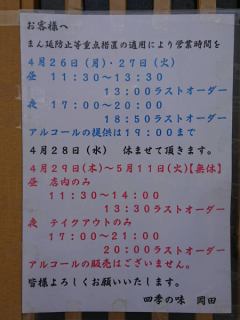 お客様へ
まん延防止等重点措置の適用により営業時間を
4月26日(月)・27日(火)
昼 11:30～13:30
13:00ラストオーダー
夜 17:00～20:00
18:50ラストオーダー
アルコールの提供は19:00まで
4月28日(水) 休ませて頂きます。
4月29日(木)～5月11日(火)【無休】
昼 店内のみ
11:30～14:00
13:30ラストオーダー
夜 テイクアウトのみ
17:00～21:00
20:00ラストオーダー
アルコールの販売はございません。
皆様よろしくお願いいたします。
四季の味 岡田